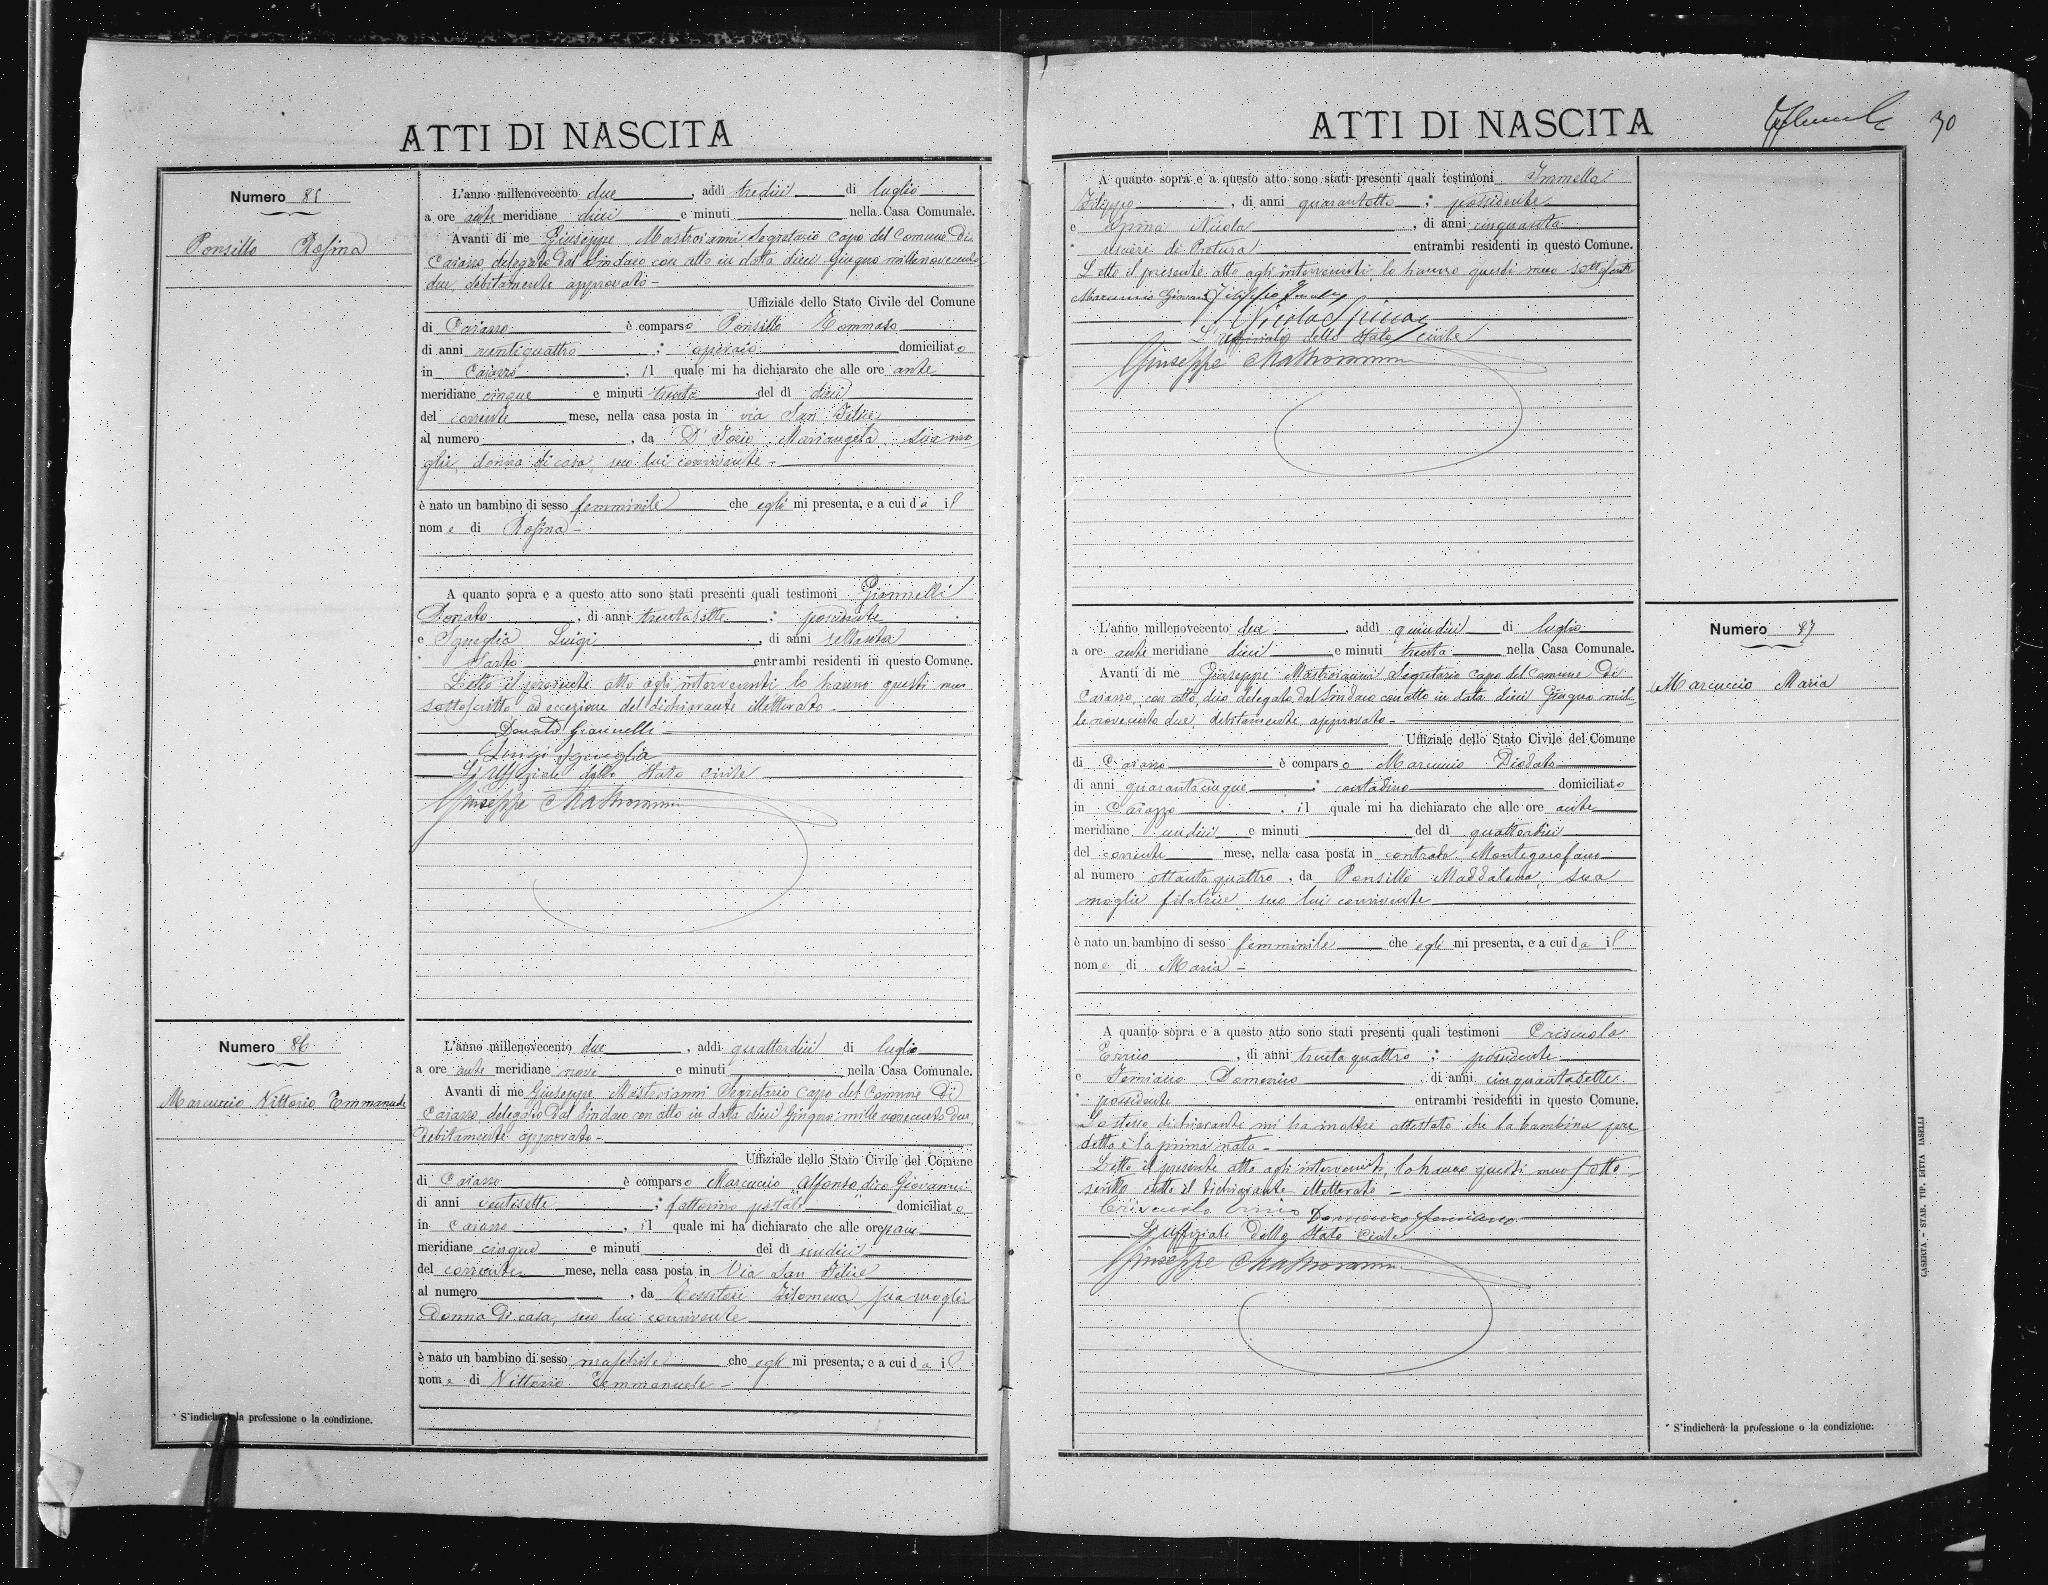 ATTI DI NASCITA
Numero 85
Ponsillo Rosina
L'anno millenovecento due, addì tredici di luglio
a ore ante meridiane dieci e minuti nella Casa Comunale.
Avanti di me Giuseppe Mastroianni Segretario capo del Comune di
Caiazzo, delegato dal Sindaco con atto in data dieci Giugno millenovecento
due, debitamente approvato -
Uffiziale dello Stato Civile del Comune
di Caiazzo è comparso Ponsillo Tommaso
di anni ventiquattro ; operaio domiciliato
in Caiazzo, il quale mi ha dichiarato che alle ore ante
meridiane cinque e minuti trenta del dì dieci
del corrente mese, nella casa posta in via San Felice
al numero , da Mariangela, sua mo
glie, donna di casa, seco lui convivente -
è nato un bambino di sesso femminile che egli mi presenta, e a cui da il
nome di Rosina -
A quanto sopra e a questo atto sono stati presenti quali testimoni Giannelli
Donato, di anni trentasette ; possidente
e Sgueglia Luigi, di anni settanta
* Sarto entrambi residenti in questo Comune.
Letto il presente atto agli intervenuti lo hanno questi meco
sottoscritto ad eccezione del dichiarante illetterato -
Donato Giannelli
Luigi Sgueglia
L'Uffiziale dello Stato Civile
Giuseppe Mastroianni
Numero 86
Marcuccio Vittorio Emmanuele
L'anno millenovecento due, addì quattordici di luglio
a ore ante meridiane nove e minuti nella Casa Comunale.
Avanti di me Giuseppe Mastroianni Segretario capo del Comune di
Caiazzo, delegato dal Sindaco con atto in data dieci Giugno millenovecento due,
debitamente approvato -
Uffiziale dello Stato Civile del Comune
di Caiazzo è comparso Marcuccio Alfonso, dico Giovanni
di anni ventisette ; fattorino postale domiciliato
in Caiazzo, il quale mi ha dichiarato che alle ore pom
meridiane cinque e minuti del dì undici
del corrente mese, nella casa posta in Via San Felice
al numero , da Filomena, sua moglie
donna di casa, seco lui convivente
è nato un bambino di sesso maschile che egli mi presenta, e a cui da il
nome di Vittorio Emmanuele -
* S'indicherà la professione o la condizione.
ATTI DI NASCITA
30
A quanto sopra e a questo atto sono stati presenti quali testimoni
Filippo, di anni quarantotto ; possidente
e Spina Nicola, di anni cinquanta
* usciere di Pretura entrambi residenti in questo Comune.
Letto il presente atto agli intervenuti lo hanno questi meco sottoscritto
Marcuccio Giovanni Filippo
Nicola Spina
L'Uffiziale dello Stato Civile
Giuseppe Mastroianni
Numero 87
Marcuccio Maria
L'anno millenovecento due, addì quindici di luglio
a ore ante meridiane dieci e minuti trenta nella Casa Comunale.
Avanti di me Giuseppe Mastroianni Segretario capo del Comune di
Caiazzo, con atto, dico delegato dal Sindaco con atto in data dieci Giugno mil-
lenovecento due, debitamente approvato -
Uffiziale dello Stato Civile del Comune
di Caiazzo è comparso Marcuccio Diodato
di anni quarantacinque ; contadino domiciliato
in Caiazzo, il quale mi ha dichiarato che alle ore ante
meridiane undici e minuti del dì quattordici
del corrente mese, nella casa posta in contrada Montegarofano
al numero ottantaquattro, da Ponsillo Maddalena, sua
moglie filatrice, seco lui convivente
è nato un bambino di sesso femminile che egli mi presenta, e a cui da il
nome di Maria -
A quanto sopra e a questo atto sono stati presenti quali testimoni Criscuolo
Errico, di anni trentaquattro ; possidente
e Domenico, di anni cinquantasette
* possidente entrambi residenti in questo Comune.
Lo stesso dichiarante mi ha inoltre attestato che la bambina pre
detta è la prima nata -
Letto il presente atto agli intervenuti, lo hanno questi meco sotto
scritto tutti il dichiarante illetterato -
Criscuolo Domenico
L'Uffiziale dello Stato Civile
Giuseppe Mastroianni
* S'indicherà la professione o la condizione.
CASERTA. - STAB. TIP. DITTA IASELLI